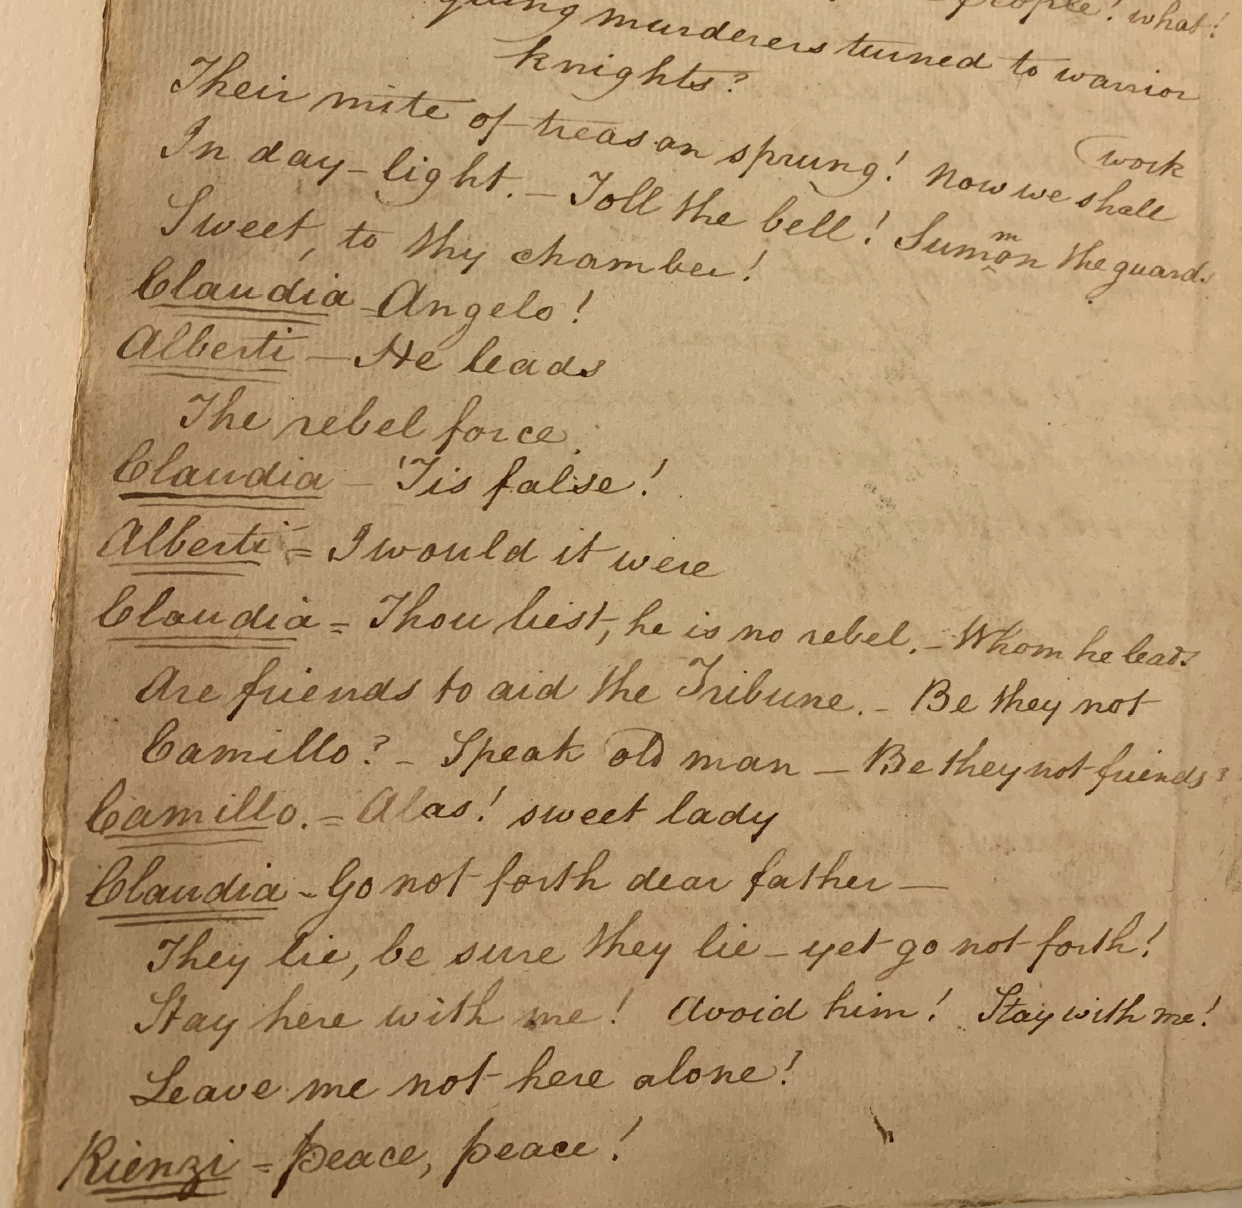 people! what!
murderers turned to warrior
knights?
Their mite of treason sprung! Now we shall
(work
In day-light. - Toll the bell! Summon the guard.
Sweet, to thy chamber!
Claudia - Angelo!
Alberti - He leads
The rebel force.
Claudia - 'Tis false!
Alberti = I would it were
Claudia = Thou liest, he is no rebel. - Whom he leads
Are friends to aid the Tribune. - Be they not
Camillo? - Speak old man - Be they not friends?
Camillo. = Alas! sweet lady
Claudia - Go not forth dear father -
They lie, be sure they lie - yet go not forth!
Stay here with me! Avoid him! Stay with me!
Leave me not here alone!
Rienzi = Peace, peace!